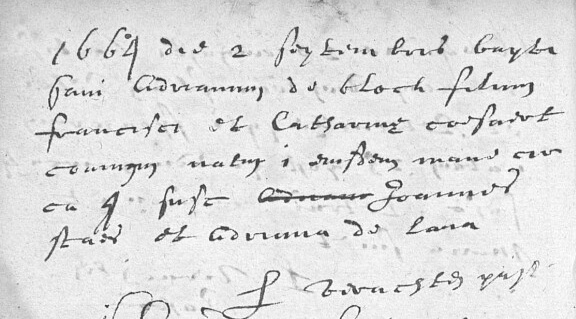 1664 die 2 septembris bapti
savi Adrianum de bloch filium
francisci et Catharinę coesaert
coniugum natum i eiusdem mane cir
ca 4 susc Joannes
staes et Adriana de
f